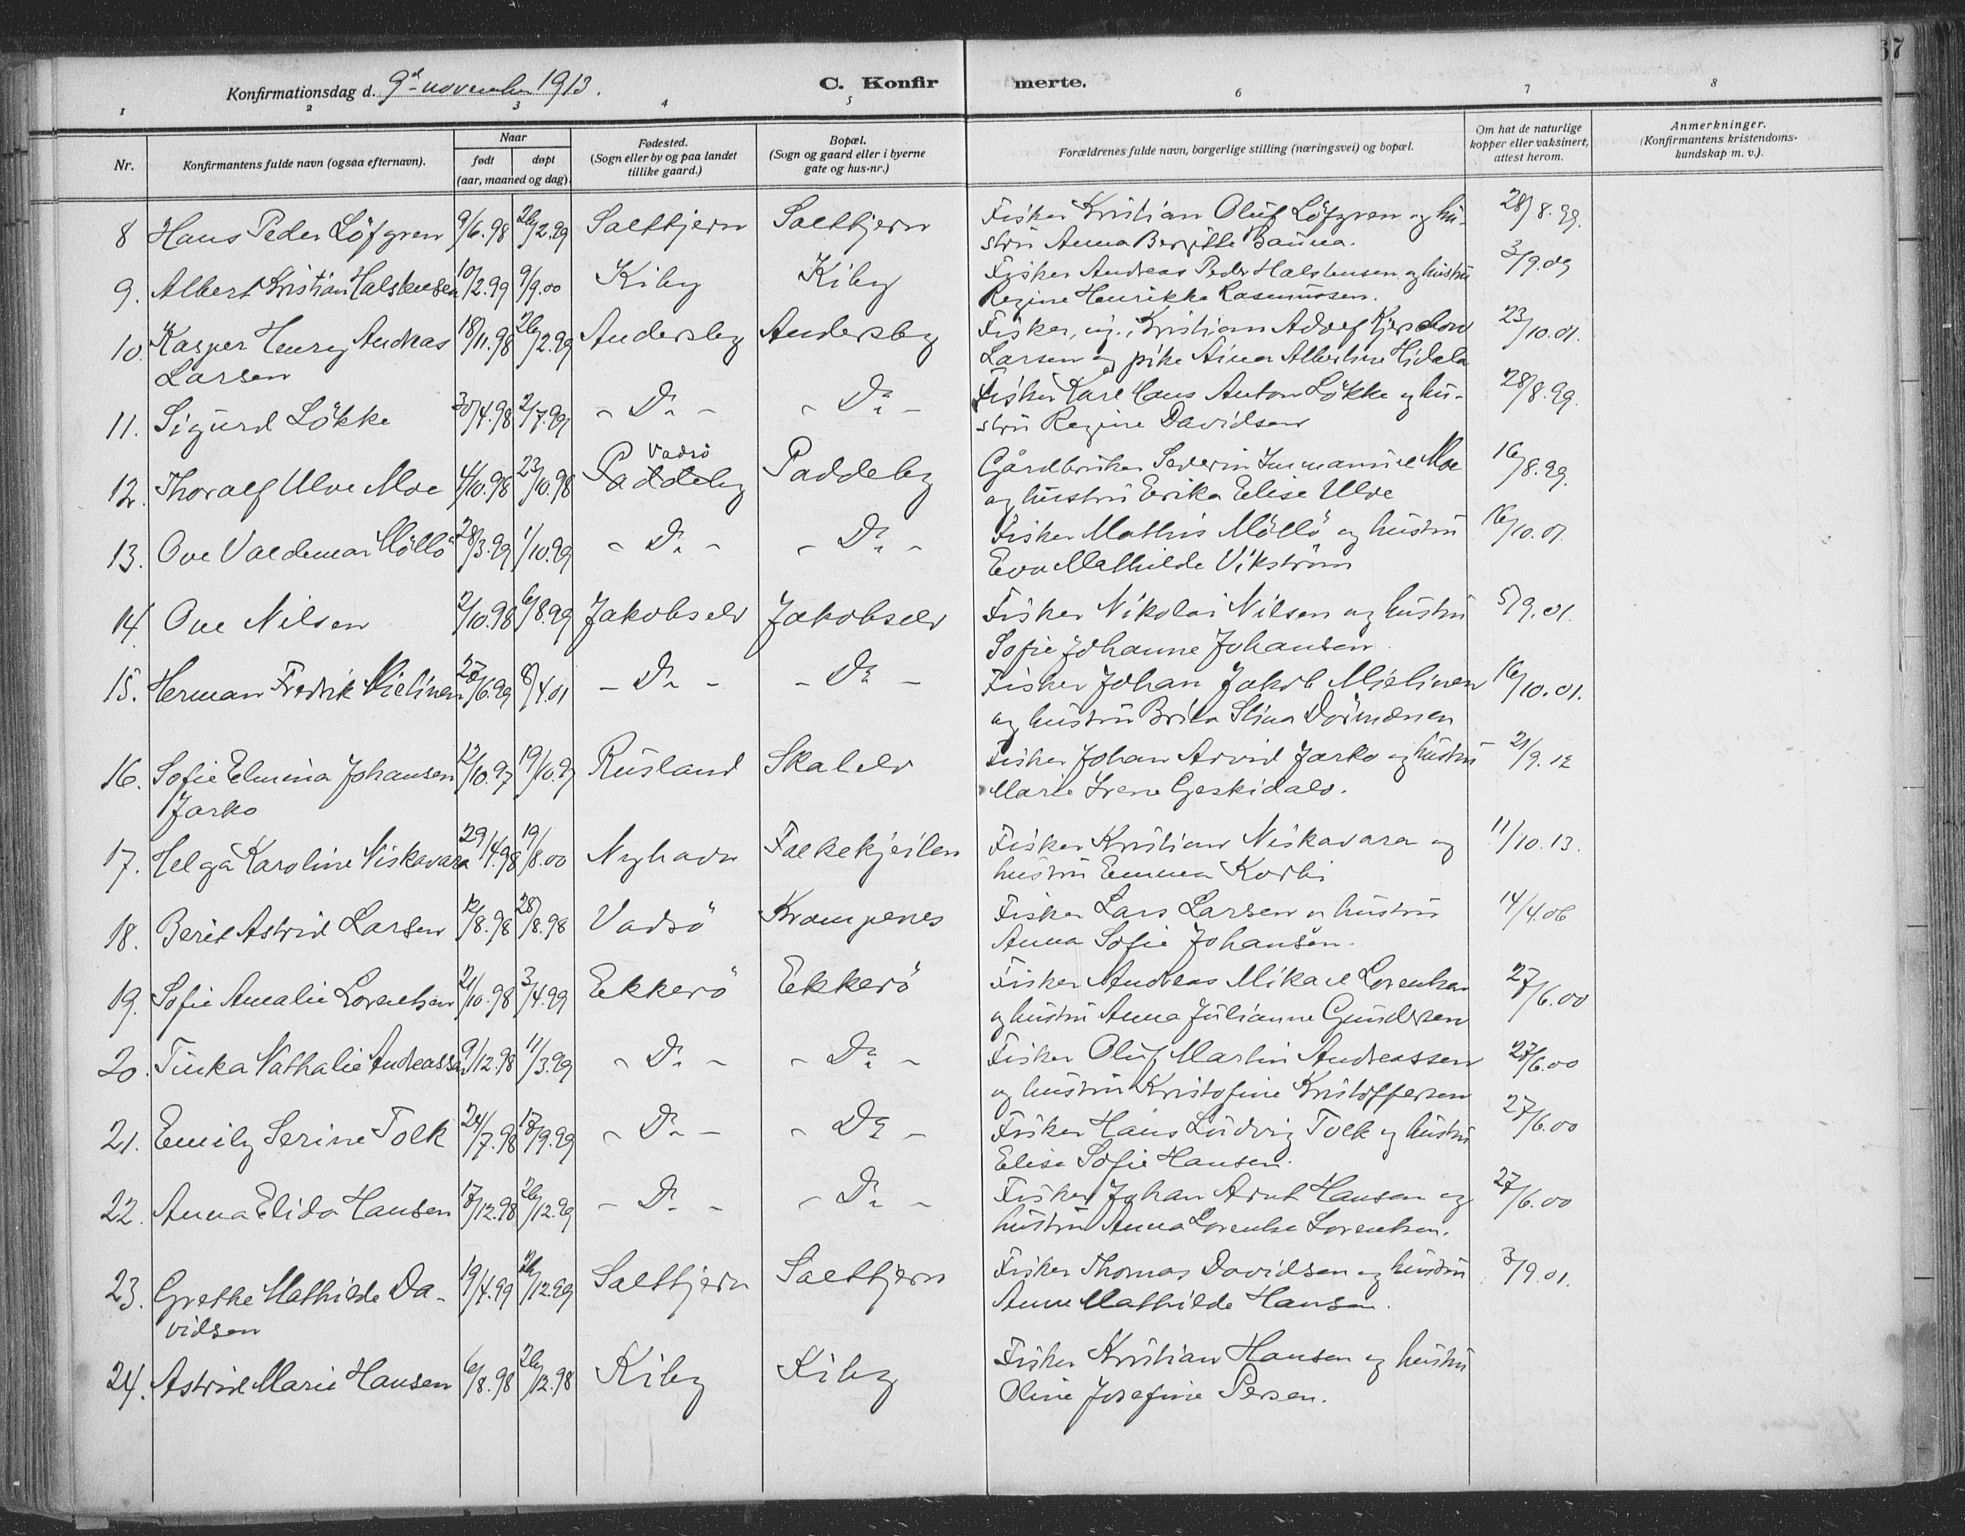 67
Konfirmationsdag d. 9de november 1913. C. Konfirmerte.
1 2 3 4 5 6 7 8
Nr. Konfirmantens fulde navn (ogsaa efternavn). Naar født døpt (aar, maaned og dag). Fødested. (Sogn eller by og paa landet tillike gaard.) Bopæl. (Sogn og gaard eller i byerne gate og hus-nr.) Forældrenes fulde navn, borgerlige stilling (næringsvei) og bopæl. Om hat de naturlige kopper eller vaksinert, attest herom. Anmerkninger. (Konfirmantens kristendomskundskap m. v.).
8 Hans Peder Löfgren 9/6.98 26/2.99 Saltjern Saltjern Fisker Kristian Oluf Löfgren og hu- 28/8.99.
strü Anna Bergitte Bauna.
9. Albert Kristian Halstensen 10/2.99 9/9.00 Kiby Kiby Fisker Andreas Peder Halstensen og hustrü 3/9.09
Regine Henrikke Rasmussen.
10. Kasper Henry Andreas 18/11.98 26/2.99 Andersby Andersby Fisker, ug., Kristian Adolf 23/10.01.
Larsen Larsen og pike Aina Albertine
11. Sigurd Lökke 30/4.98 2/7.99 - Do - - Do - Fisker Karl Hans Anton Lökke og hu- 28/8.99.
strü Regine Davidsen
12. Thoralf Ulve Moe 4/10.98 23/10.98 Vadsö Paddeby Paddeby Gårdbruker Severin Immanuel Moe 16/8.99.
og hustrü Erika Elise Ulve
13. Ove Valdemar Möllö 28/3.99 1/10.99 - Do - - Do - Fisker Mathis Möllö og hustrü 16/10.01.
Eva Mathilde Vikström
14. Ove Nilsen 2/10.98 6/8.99 Jakobselv Jakobselv Fisker Nikolai Nilsen og hustrü 5/9.01.
Sofie Johanne Johansen.
15. Herman Fredrik Mielinen 27/6.99 8/4.01 - Do - - Do - Fisker Johan Jakob Mielinen 16/10.01.
og hustrü Brita Stina
16. Sofie Elmina Johansen 12/10.97 19/10.97 Rüsland Skalelv Fisker Johan Arvid Jarko og hustrü 21/9.12
Jarko Marie Irene
17. Helga Karoline Niskavara 29/4.98 19/8.00 Nyhavn Falkekjeilen Fisker Kristian Niskavara og 11/10.13.
hustrü Emma Korbi
18. Berit Astrid Larsen 12/8.98 28/8.98 Vadsö Krampenes Fisker Lars Larsen og hustrü 14/4.06
Anna Sofie Johansen.
19. Sofie Amalie Lorentsen 21/10.98 3/4.99 Ekkerö Ekkerö Fisker Andreas Mikael Lorentsen 27/6.00
og hustrü Anna Jülianne Gundersen
20. Tinka Nathalie Andreassen 9/12.98 11/3.99 - Do - - Do - Fisker Oluf Martin Andreassen 27/6.00
og hustrü Kristofine Kristoffersen
21. Emily Serine Tolk 24/7.98 17/9.99 - Do - - Do - Fisker Hans Lüdvig Tolk og hustrü 27/6.00
Elise Sofie Hansen.
22. Anna Elida Hansen 17/12.98 26/12.99 - Do - - Do - Fisker Johan Arnt Hansen og 27/6.00
hustrü Anna Lorentse Lorentsen.
23. Grethe Mathilde Da- 19/4.99 26/12.99 Saltjern Saltjern Fisker Thomas Davidsen og hustrü 3/9.01.
vidsen Anne Mathilde Hansen.
24. Astrid Marie Hansen 6/8.98 26/12.98 Kiby Kiby Fisker Kristian Hansen og hustrü
Oline Josefine Persen.